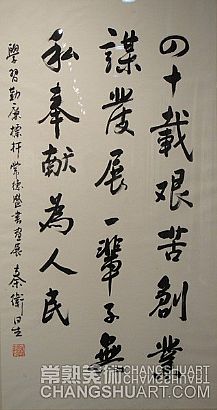 四十载艰苦創業
謀发展一輩子無
私奉献為人民
學習勤廉標杆常德盛書画展
秦衛日書
常熟美術 CHANGSHUART
CHANGSHUART.COM